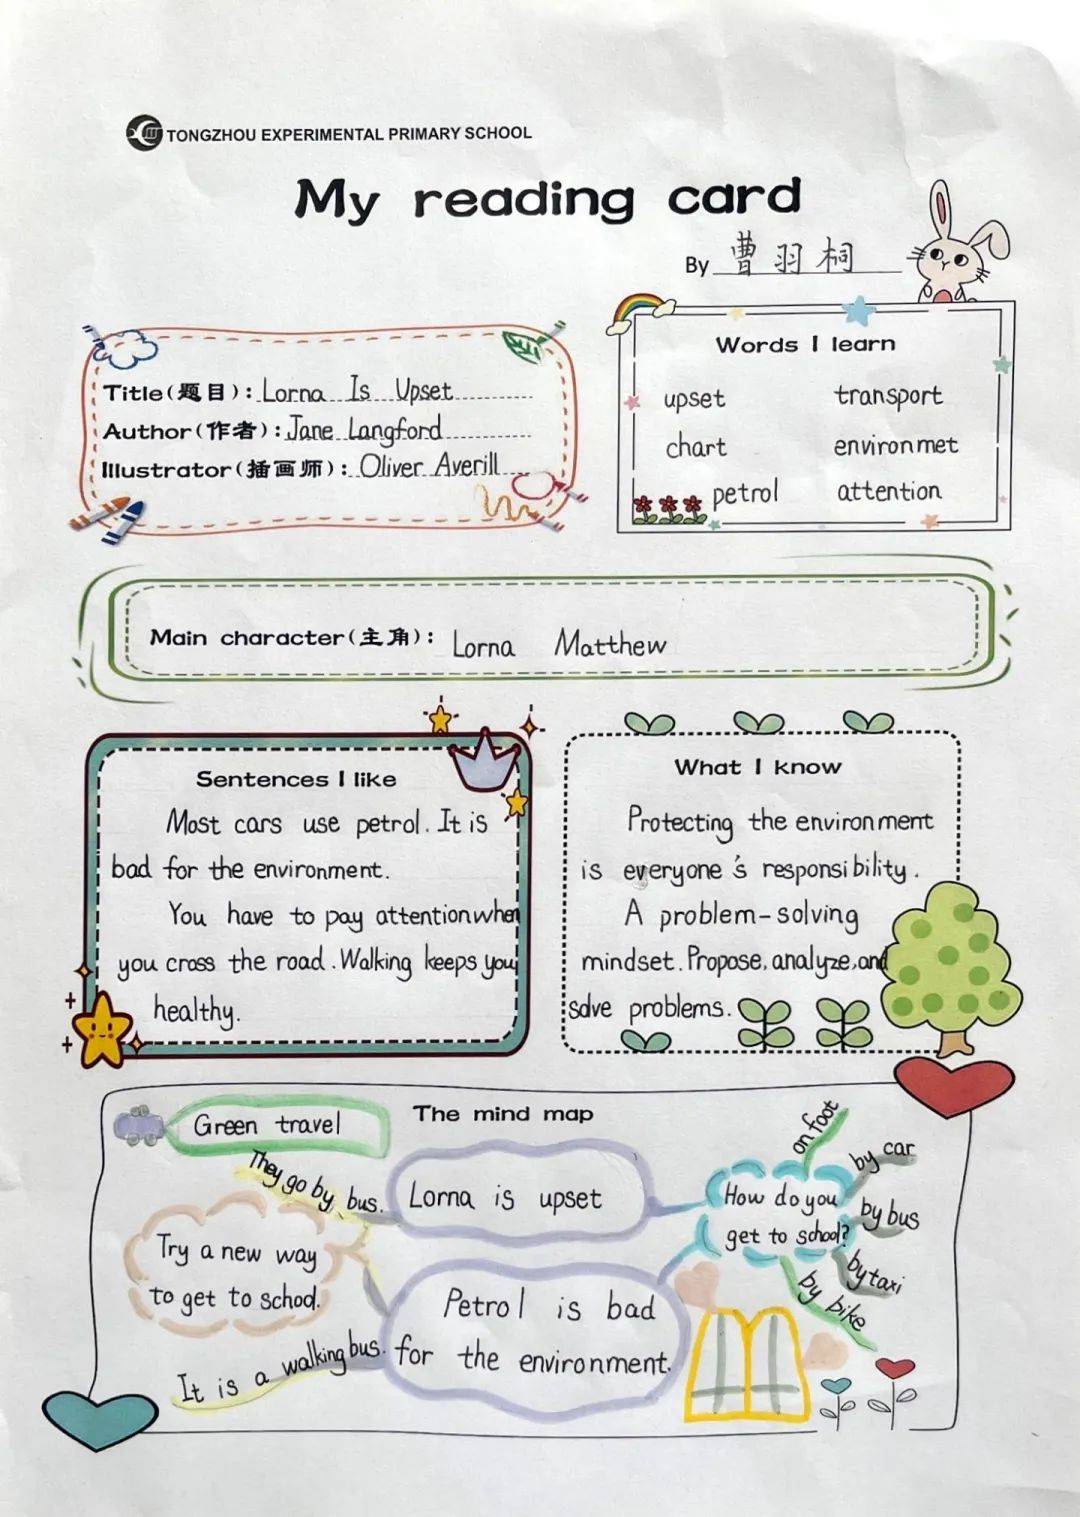 TONGZHOU EXPERIMENTAL PRIMARY SCHOOL
My reading card
By 曹羽桐
Title(题目): Lorna Is Upset
Author(作者): Jane Langford
Illustrator(插画师): Oliver Averill
Words I learn
upset transport
chart environmet
petrol attention
Main character(主角): Lorna Matthew
Sentences I like
Most cars use petrol. It is
bad for the environment.
You have to pay attention when
you cross the road. Walking keeps you
healthy.
What I know
Protecting the environment
is everyone's responsibility.
A problem-solving
mindset. Propose, analyze, and
solve problems.
The mind map
Green travel
They go by bus.
Lorna is upset
Try a new way
to get to school.
It is a walking bus.
Petrol is bad
for the environment.
How do you
get to school?
on foot
by car
by bus
by taxi
by bike